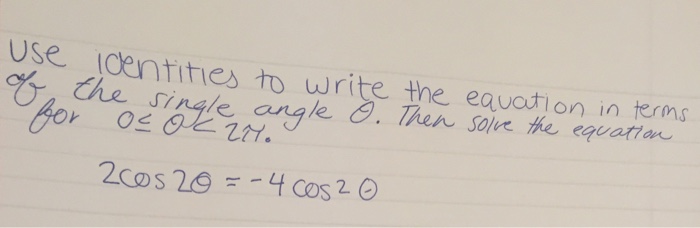 Use identities to write the equation in terms
of the single angle θ. Then solve the equation
for 0≤θ<2π.
2cos2θ = -4cos2θ